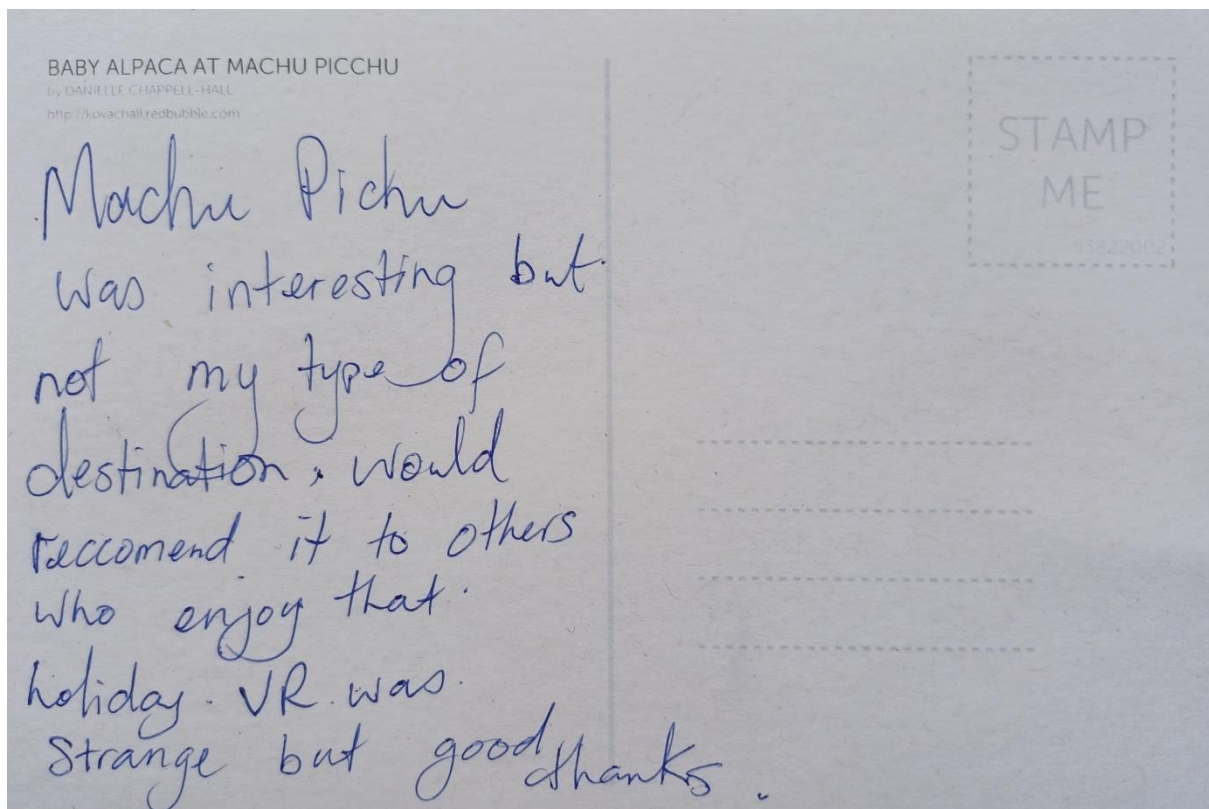 BABY ALPACA AT MACHU PICCHU
by DANIELLE CHAPPELL-HALL
http://kovachall.redbubble.com
STAMP
ME
53822002
Machu Pichu
was interesting but
not my type of
destination. would
reccomend it to others
who enjoy that
holiday. VR was
strange but good thanks.